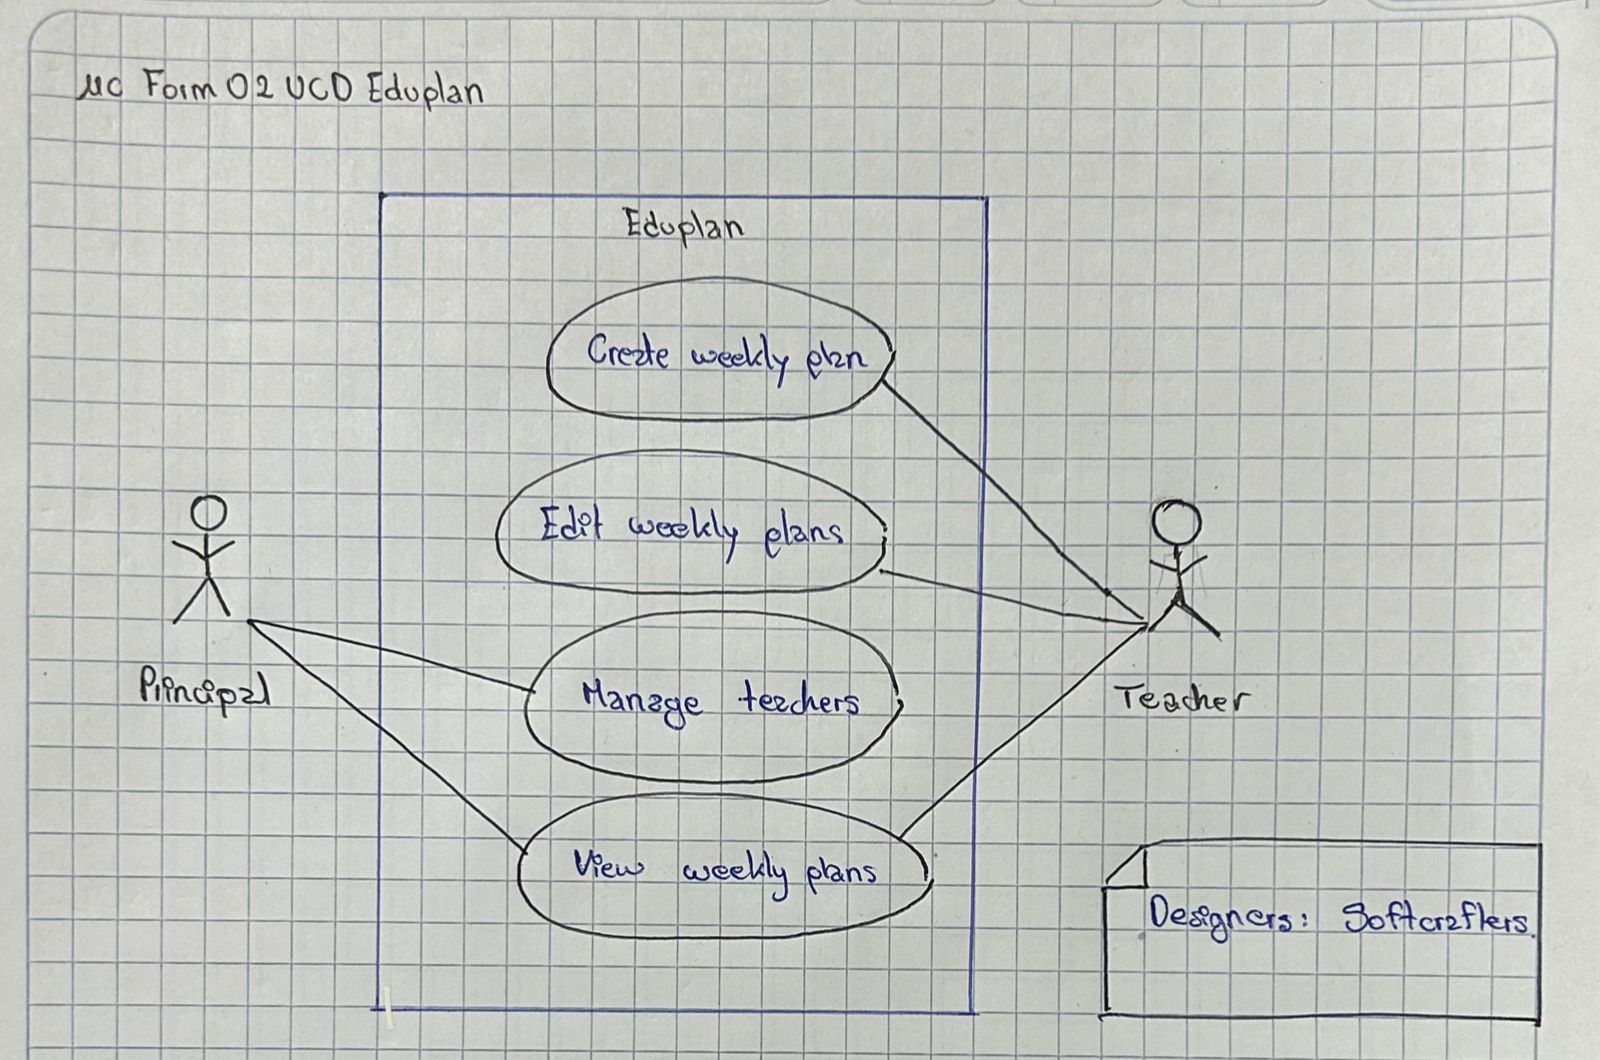 uc Form 02 UCD Eduplan
Eduplan
Create weekly plan
Edit weekly plans
Manage teachers
View weekly plans
Principal
Teacher
Designers: Softcrafters.